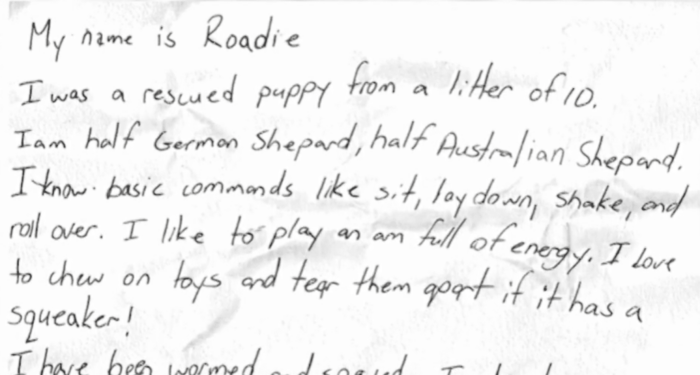 My name is Roadie
I was a rescued puppy from a litter of 10.
I am half German Shepard, half Australian Shepard.
I know basic commands like sit, lay down, shake, and
roll over. I like to play an am full of energy. I love
to chew on toys and tear them apart if it has a
squeaker!
I have been wormed and spayed. I